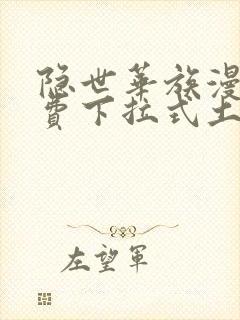 隐世华族漫
费下拉式土
左望军